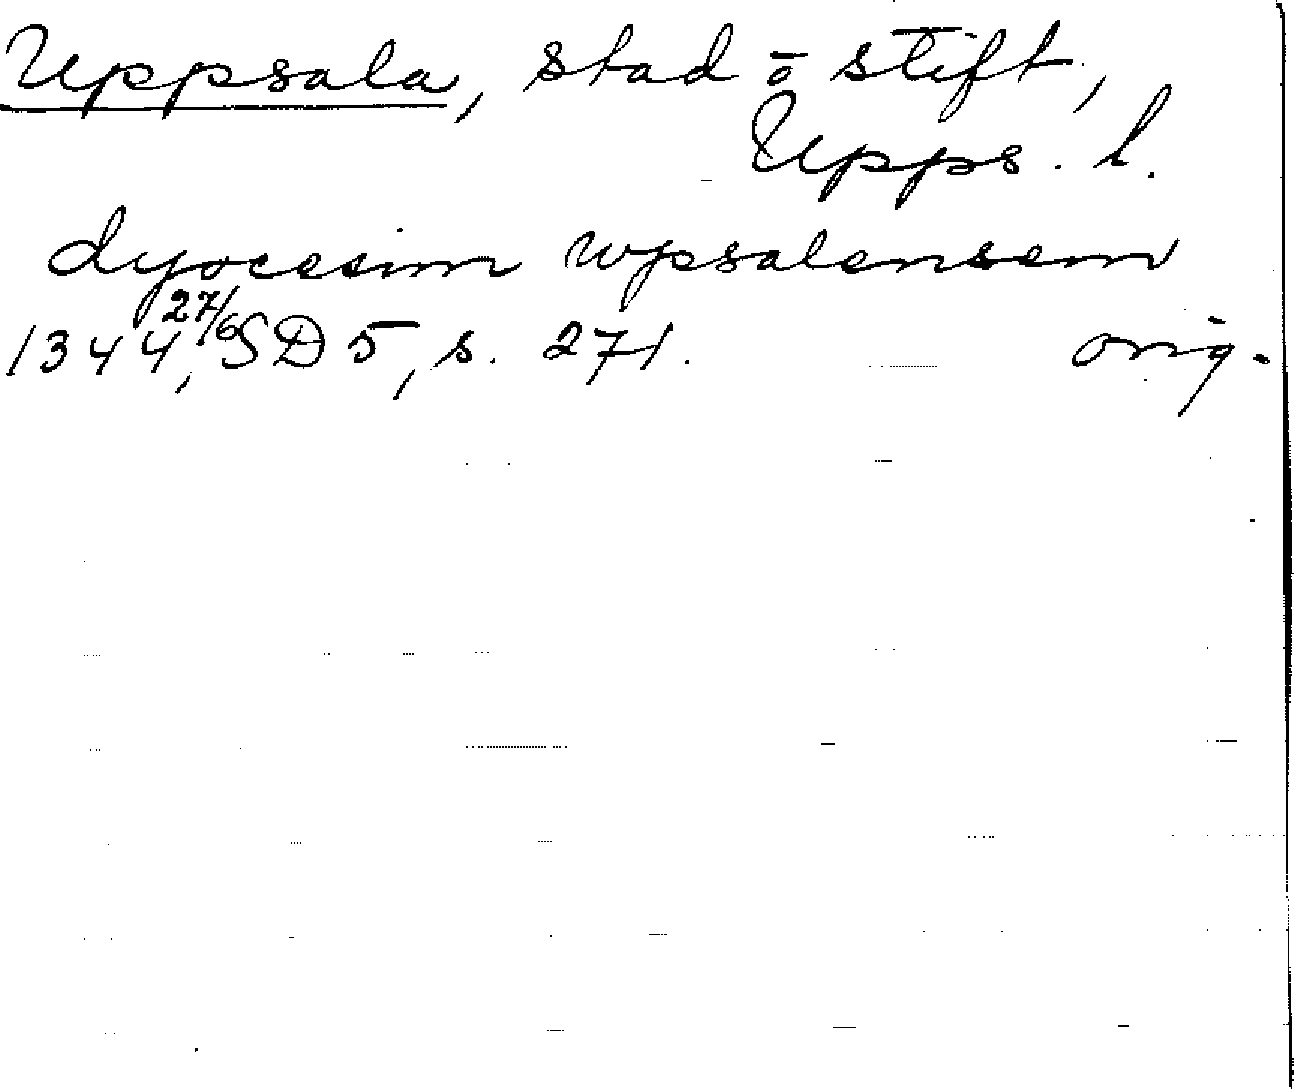 Uppsala, stad o stift,
Upps. l.
dyocesim wpsalensem
1344 27/6, SD 5, s. 271. orig.